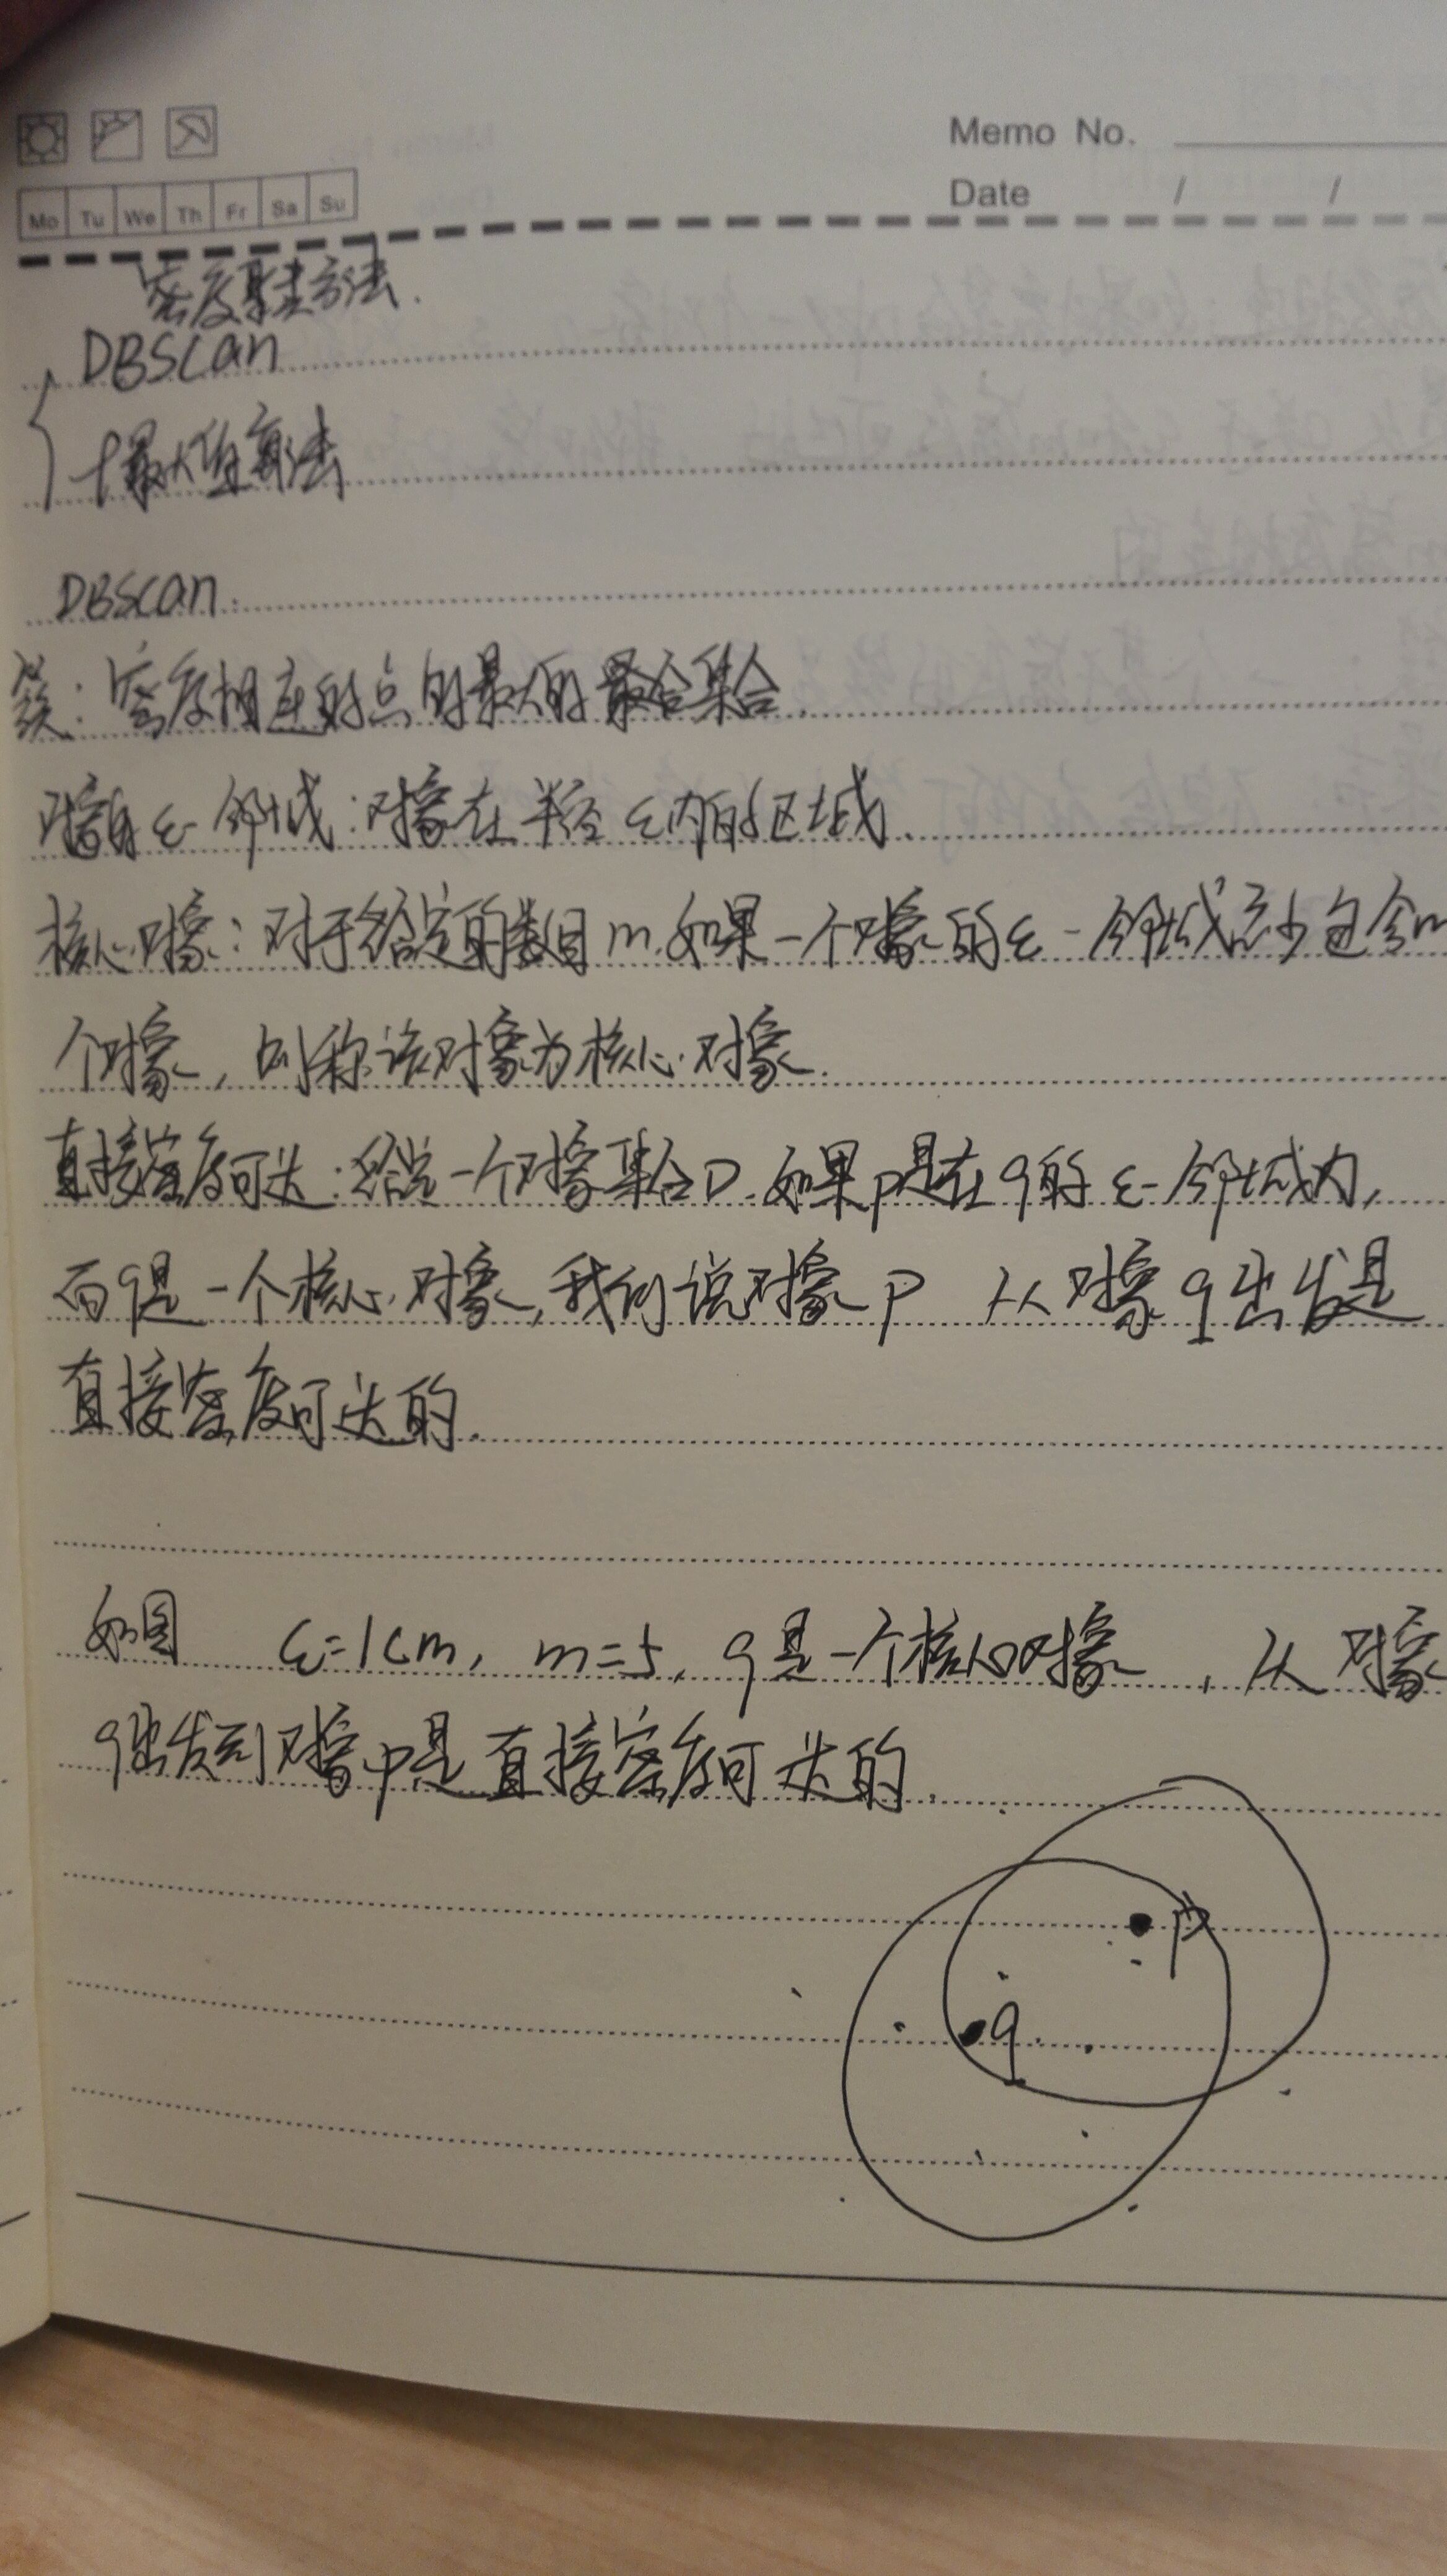 Memo No.
Date / /
Mo Tu We Th Fr Sa Su
密度聚类方法.
DBSCan
最大值算法
DBSCan.
簇:密度相连的点的最大的集合.
对象的ε-邻域:对象在半径ε内的区域.
核心对象:对于给定的数目m.如果一个对象的ε-邻域至少包含m
个对象,则称该对象为核心对象.
直接密度可达:给定一个对象集合D.如果p是在q的ε-邻域内,
而q是一个核心对象,我们说对象p 从对象q出发是
直接密度可达的.
如图 ε=1cm, m=5, q是一个核心对象 ,从对象
q出发到对象p是直接密度可达的.
p
q